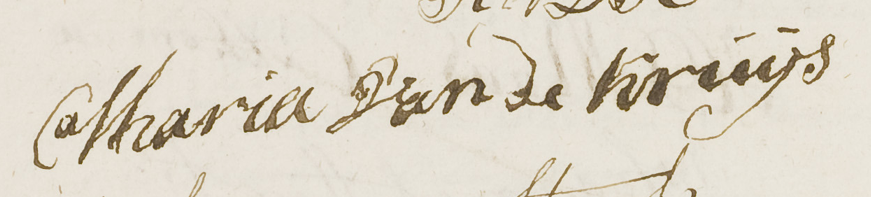 Catharia Van de Kruijs